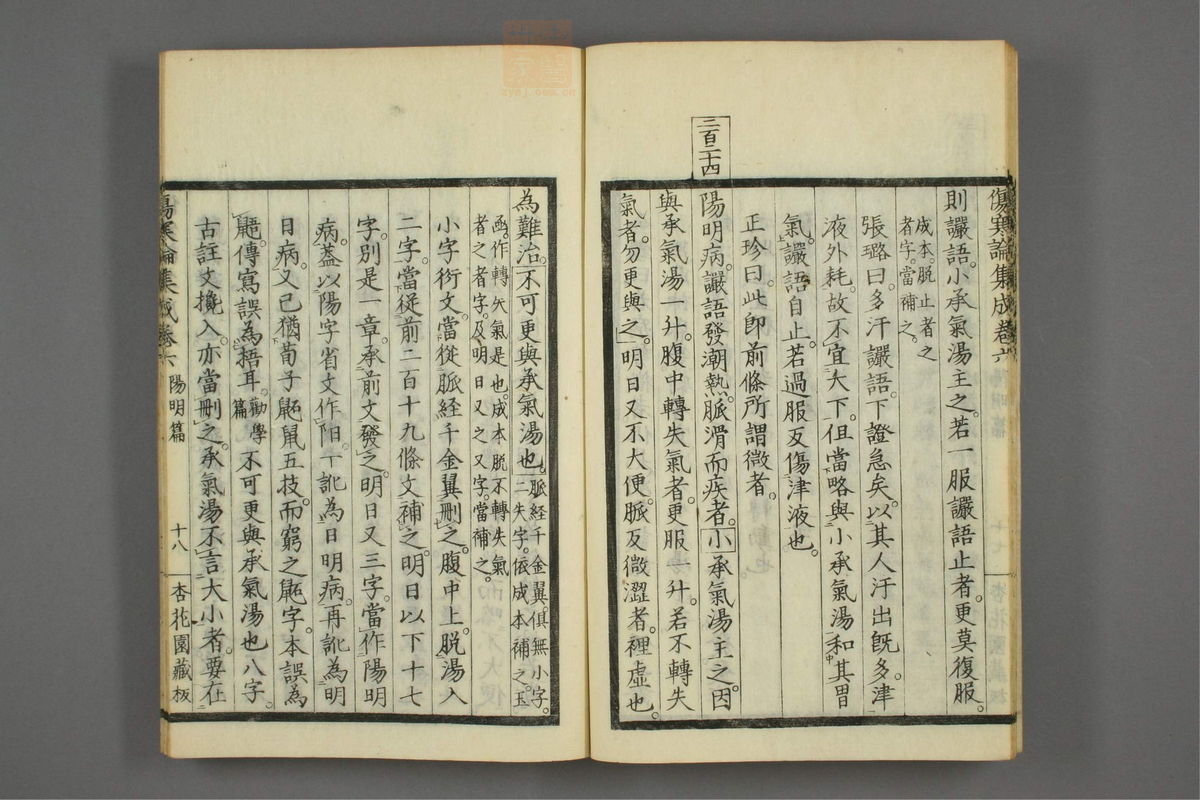 傷寒論集成卷六
則讝語。小承氣湯主之。若一服讝語止者。更莫復服。
成本。脫止者之
者字。當補之。
張璐曰。多汗讝語。下證急矣。以其人汗出既多。津
液外耗。故不宜大下。但當略與小承氣湯。和其胃
氣。讝語自止。若過服反傷津液也。
正珍曰。此即前條所謂微者。
二百二十四
陽明病。讝語發潮熱。脈滑而疾者。小承氣湯主之。因
與承氣湯一升。腹中轉失氣者。更服一升。若不轉失
氣者。勿更與之。明日又不大便。脈反微澀者。裡虛也。
為難治。不可更與承氣湯也。
脈經千金翼。俱無小字。
二失字。依成本補之。玉
函。作轉矢氣是也。成本脫不轉失氣
者之者字。及明日又之又字。當補之。
小字衍文。當從脈經千金翼刪之。腹中上。脫湯入
二字。當從前二百十九條文補之。明日以下十七
字。別是一章。承前文發之。明日又三字。當作陽明
病。蓋以陽字省文作阳。一訛為日明病。再訛為明
日病。又已猶荀子鼫鼠五技。而窮之鼫字。本誤為
鼯。傳寫誤為梧耳。
勸學
篇
不可更與承氣湯也八字。
古註文攙入。亦當刪之。承氣湯不言大小者。要在
傷寒論集成卷六
陽明篇
十八
杏花園藏板